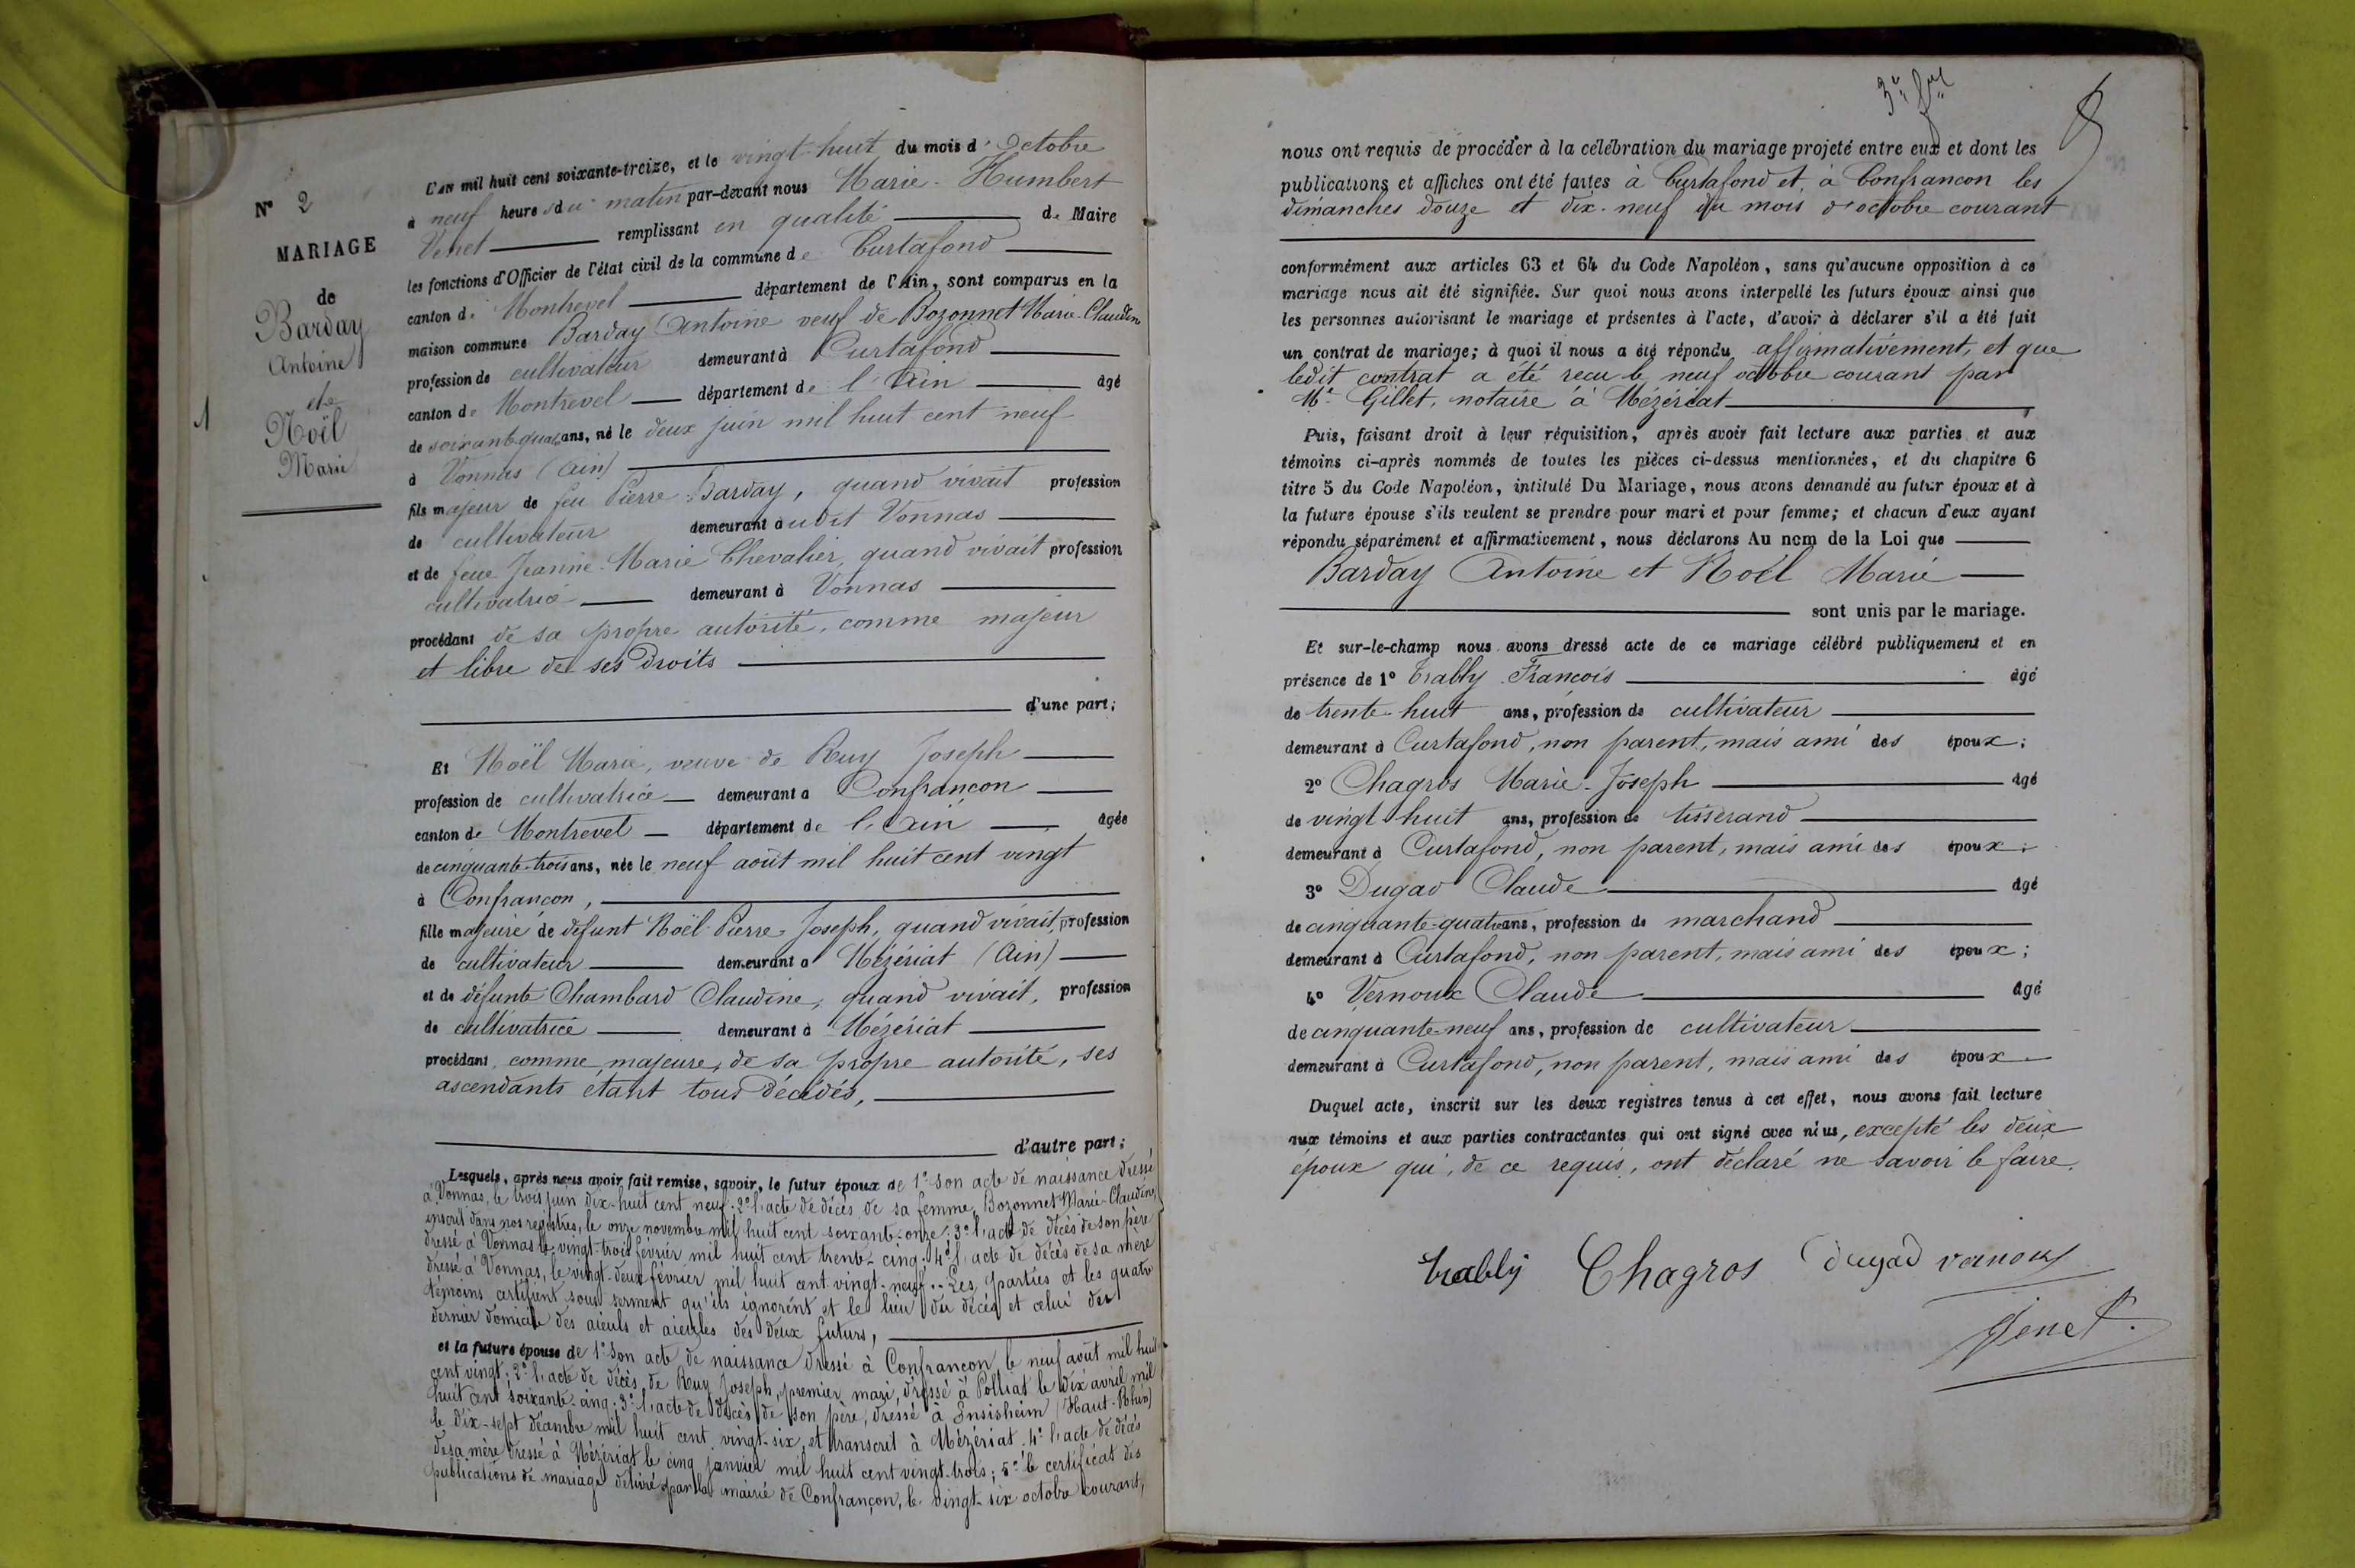 N° 2
MARIAGE
de
Barday
Antoine
et de
Noël
Marie
1
L'an mil huit cent soixante-treize, et le vingt-huit du mois d'Octobre
à neuf heures du matin par-devant nous Marie-Humbert
Venet remplissant en qualité de Maire
les fonctions d'Officier de l'état civil de la commune de Curtafond
canton de Montrevel département de l'Ain, sont comparus en la
maison commune Barday Antoine veuf de Bozonnet Marie-Claudine
profession de cultivateur demeurant à Curtafond
canton de Montrevel département de l'Ain âgé
de soixante-quatre ans, né le deux juin mil huit cent neuf
à Vonnas (Ain)
fils majeur de feu Pierre Barday, quand vivait profession
de cultivateur demeurant audit Vonnas
et de feue Jeanne-Marie Chevalier, quand vivait profession
cultivatrice demeurant à Vonnas
procédant de sa propre autorité, comme majeur
et libre de ses droits
d'une part;
Et Noël Marie, veuve de Ruy Joseph
profession de cultivatrice demeurant à Confrançon
canton de Montrevel département de l'Ain âgée
de cinquante-trois ans, née le neuf août mil huit cent vingt
à Confrançon,
fille majeure de défunt Noël Pierre-Joseph, quand vivait, profession
de cultivateur demeurant à Mézériat (Ain)
et de défunte Chambard Claudine, quand vivait, profession
de cultivatrice demeurant à Mézériat
procédant comme majeure, de sa propre autorité, ses
ascendants étant tous décédés,
d'autre part;
Lesquels, après nous avoir fait remise, savoir, le futur époux de 1° son acte de naissance dressé
à Vonnas, le trois juin dix-huit cent neuf; 2° l'acte de décès de sa femme, Bozonnet Marie-Claudine,
inscrit dans nos registres, le onze novembre mil huit cent soixante-onze; 3° l'acte de décès de son père
dressé à Vonnas le vingt-trois février mil huit cent trente-cinq; 4° l'acte de décès de sa mère
dressé à Vonnas, le vingt-deux février mil huit cent vingt-neuf. Les parties et les quatre
témoins certifient sous serment qu'ils ignorent et le lieu du décès et celui des
dernier domicile des aieuls et aieules des deux futurs,
et la future épouse de 1° Son acte de naissance dressé à Confrançon le neuf août mil huit
cent vingt; 2° l'acte de décès de Ruy Joseph, premier mari, dressé à Polliat le dix avril mil
huit cent soixante-cinq; 3° l'acte de décès de son père, dressé à Ensisheim (Haut-Rhin)
le dix-sept décembre mil huit cent vingt-six, et transcrit à Mézériat. 4° l'acte de décès
de sa mère dressé à Mézériat le cinq janvier mil huit cent vingt-trois; 5° le certificat des
publications de mariage délivré par la mairie de Confrançon, le vingt-six octobre courant,
nous ont requis de procéder à la célébration du mariage projeté entre eux et dont les
publications et affiches ont été faites à Curtafond et à Confrancon les
dimanches douze et dix-neuf du mois d'octobre courant
conformément aux articles 63 et 64 du Code Napoléon, sans qu'aucune opposition à ce
mariage nous ait été signifiée. Sur quoi nous avons interpellé les futurs époux ainsi que
les personnes autorisant le mariage et présentes à l'acte, d'avoir à déclarer s'il a été fait
un contrat de mariage; à quoi il nous a été répondu affirmativement, et que
ledit contrat a été recu le neuf octobre courant par
Me Gillet, notaire à Mézériat
Puis, faisant droit à leur réquisition, après avoir fait lecture aux parties et aux
témoins ci-après nommés de toutes les pièces ci-dessus mentionnées, et du chapitre 6
titre 5 du Code Napoléon, intitulé Du Mariage, nous avons demandé au futur époux et à
la future épouse s'ils veulent se prendre pour mari et pour femme; et chacun d'eux ayant
répondu séparément et affirmativement, nous déclarons Au nom de la Loi que
Barday Antoine et Noël Marie
sont unis par le mariage.
Et sur-le-champ nous avons dressé acte de ce mariage célébré publiquement et en
présence de 1° Trably François âgé
de trente-huit ans, profession de cultivateur
demeurant à Curtafond, non parent, mais ami des époux;
2° Chagros Marie-Joseph âgé
de vingt huit ans, profession de tisserand
demeurant à Curtafond, non parent, mais ami des époux;
3° Dugad Claude âgé
de cinquante-quatre ans, profession de marchand
demeurant à Curtafond, non parent, mais ami des époux;
4° Vernoux Claude âgé
de cinquante-neuf ans, profession de cultivateur
demeurant à Curtafond, non parent, mais ami des époux
Duquel acte, inscrit sur les deux registres tenus à cet effet, nous avons fait lecture
aux témoins et aux parties contractantes qui ont signé avec nous, excepté les deux
époux qui, de ce requis, ont déclaré ne savoir le faire.
trably Chagros dugad vernoux
Venet